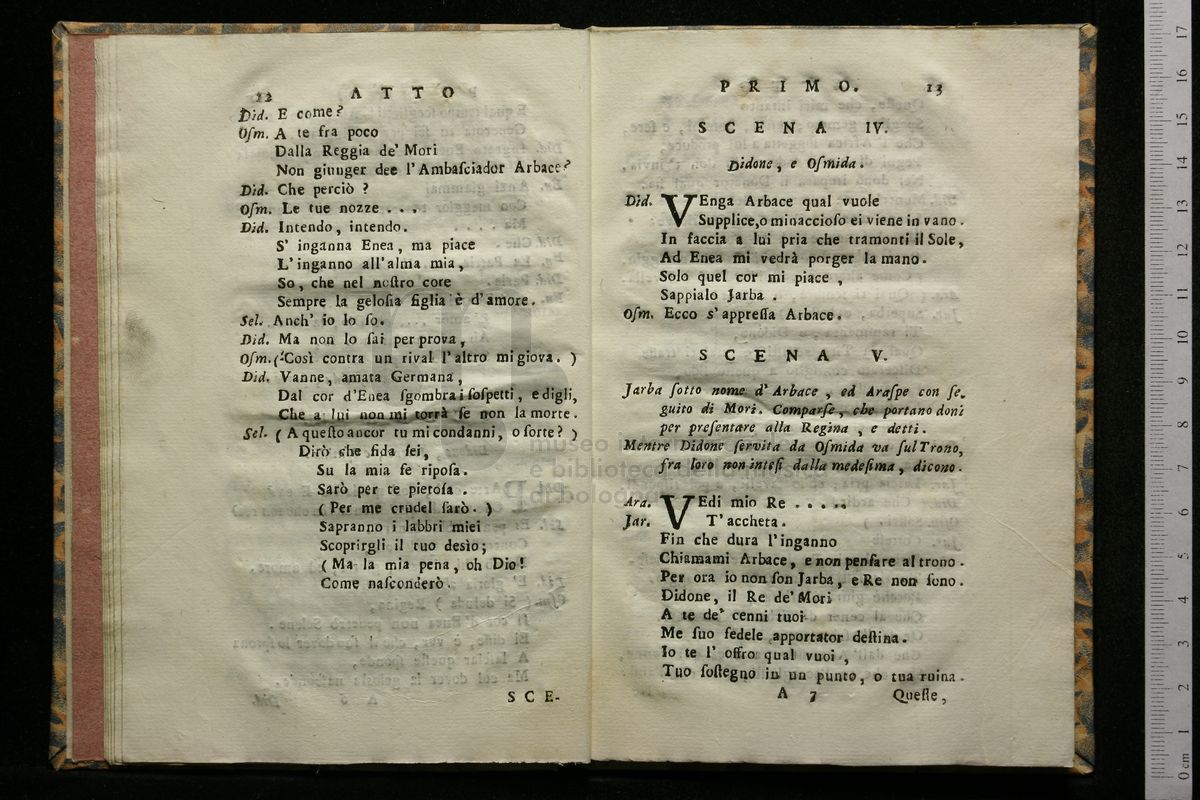 12 ATTO
Did. E come?
Oſm. A te fra poco
Dalla Reggia de' Mori
Non giunger dee l'Ambaſciador Arbace?
Did. Che perciò ?
Oſm. Le tue nozze . . .
Did. Intendo, intendo.
S' inganna Enea, ma piace
L'inganno all'alma mia,
So, che nel noſtro core
Sempre la geloſia figlia è d'amore.
Sel. Anch' io lo ſo.
Did. Ma non lo ſai per prova,
Oſm. (Così contra un rival l'altro mi giova. )
Did. Vanne, amata Germana,
Dal cor d'Enea ſgombra i ſoſpetti, e digli,
Che a lui non mi torrà ſe non la morte.
Sel. ( A queſto ancor tu mi condanni, o ſorte? )
Dirò che fida ſei,
Su la mia fe ripoſa.
Sarò per te pietoſa .
( Per me crudel ſarò. )
Sapranno i labbri miei
Scoprirgli il tuo desìo;
( Ma la mia pena, oh Dio!
Come naſconderò.
SCE-
PRIMO. 13
SCENA IV.
Didone, e Oſmida.
Did. VEnga Arbace qual vuole
Supplice, o minaccioſo ei viene in vano.
In faccia a lui pria che tramonti il Sole,
Ad Enea mi vedrà porger la mano.
Solo quel cor mi piace ,
Sappialo Jarba .
Oſm. Ecco s'appreſſa Arbace.
SCENA V.
Jarba ſotto nome d' Arbace , ed Araſpe con ſe-
guito di Mori. Comparſe, che portano doni
per preſentare alla Regina , e detti.
Mentre Didone ſervita da Oſmida va ſul Trono,
fra loro non inteſi dalla medeſima, dicono.
Ara. VEdi mio Re . . . . .
Jar. T' accheta.
Fin che dura l'inganno
Chiamami Arbace, e non penſare al trono.
Per ora io non ſon Jarba, e Re non ſono.
Didone, il Re de' Mori
A te de' cenni tuoi
Me ſuo fedele apportator deſtina.
Io te l' offro qual vuoi ,
Tuo ſoſtegno in un punto, o tua ruina.
A 7 Queſte,